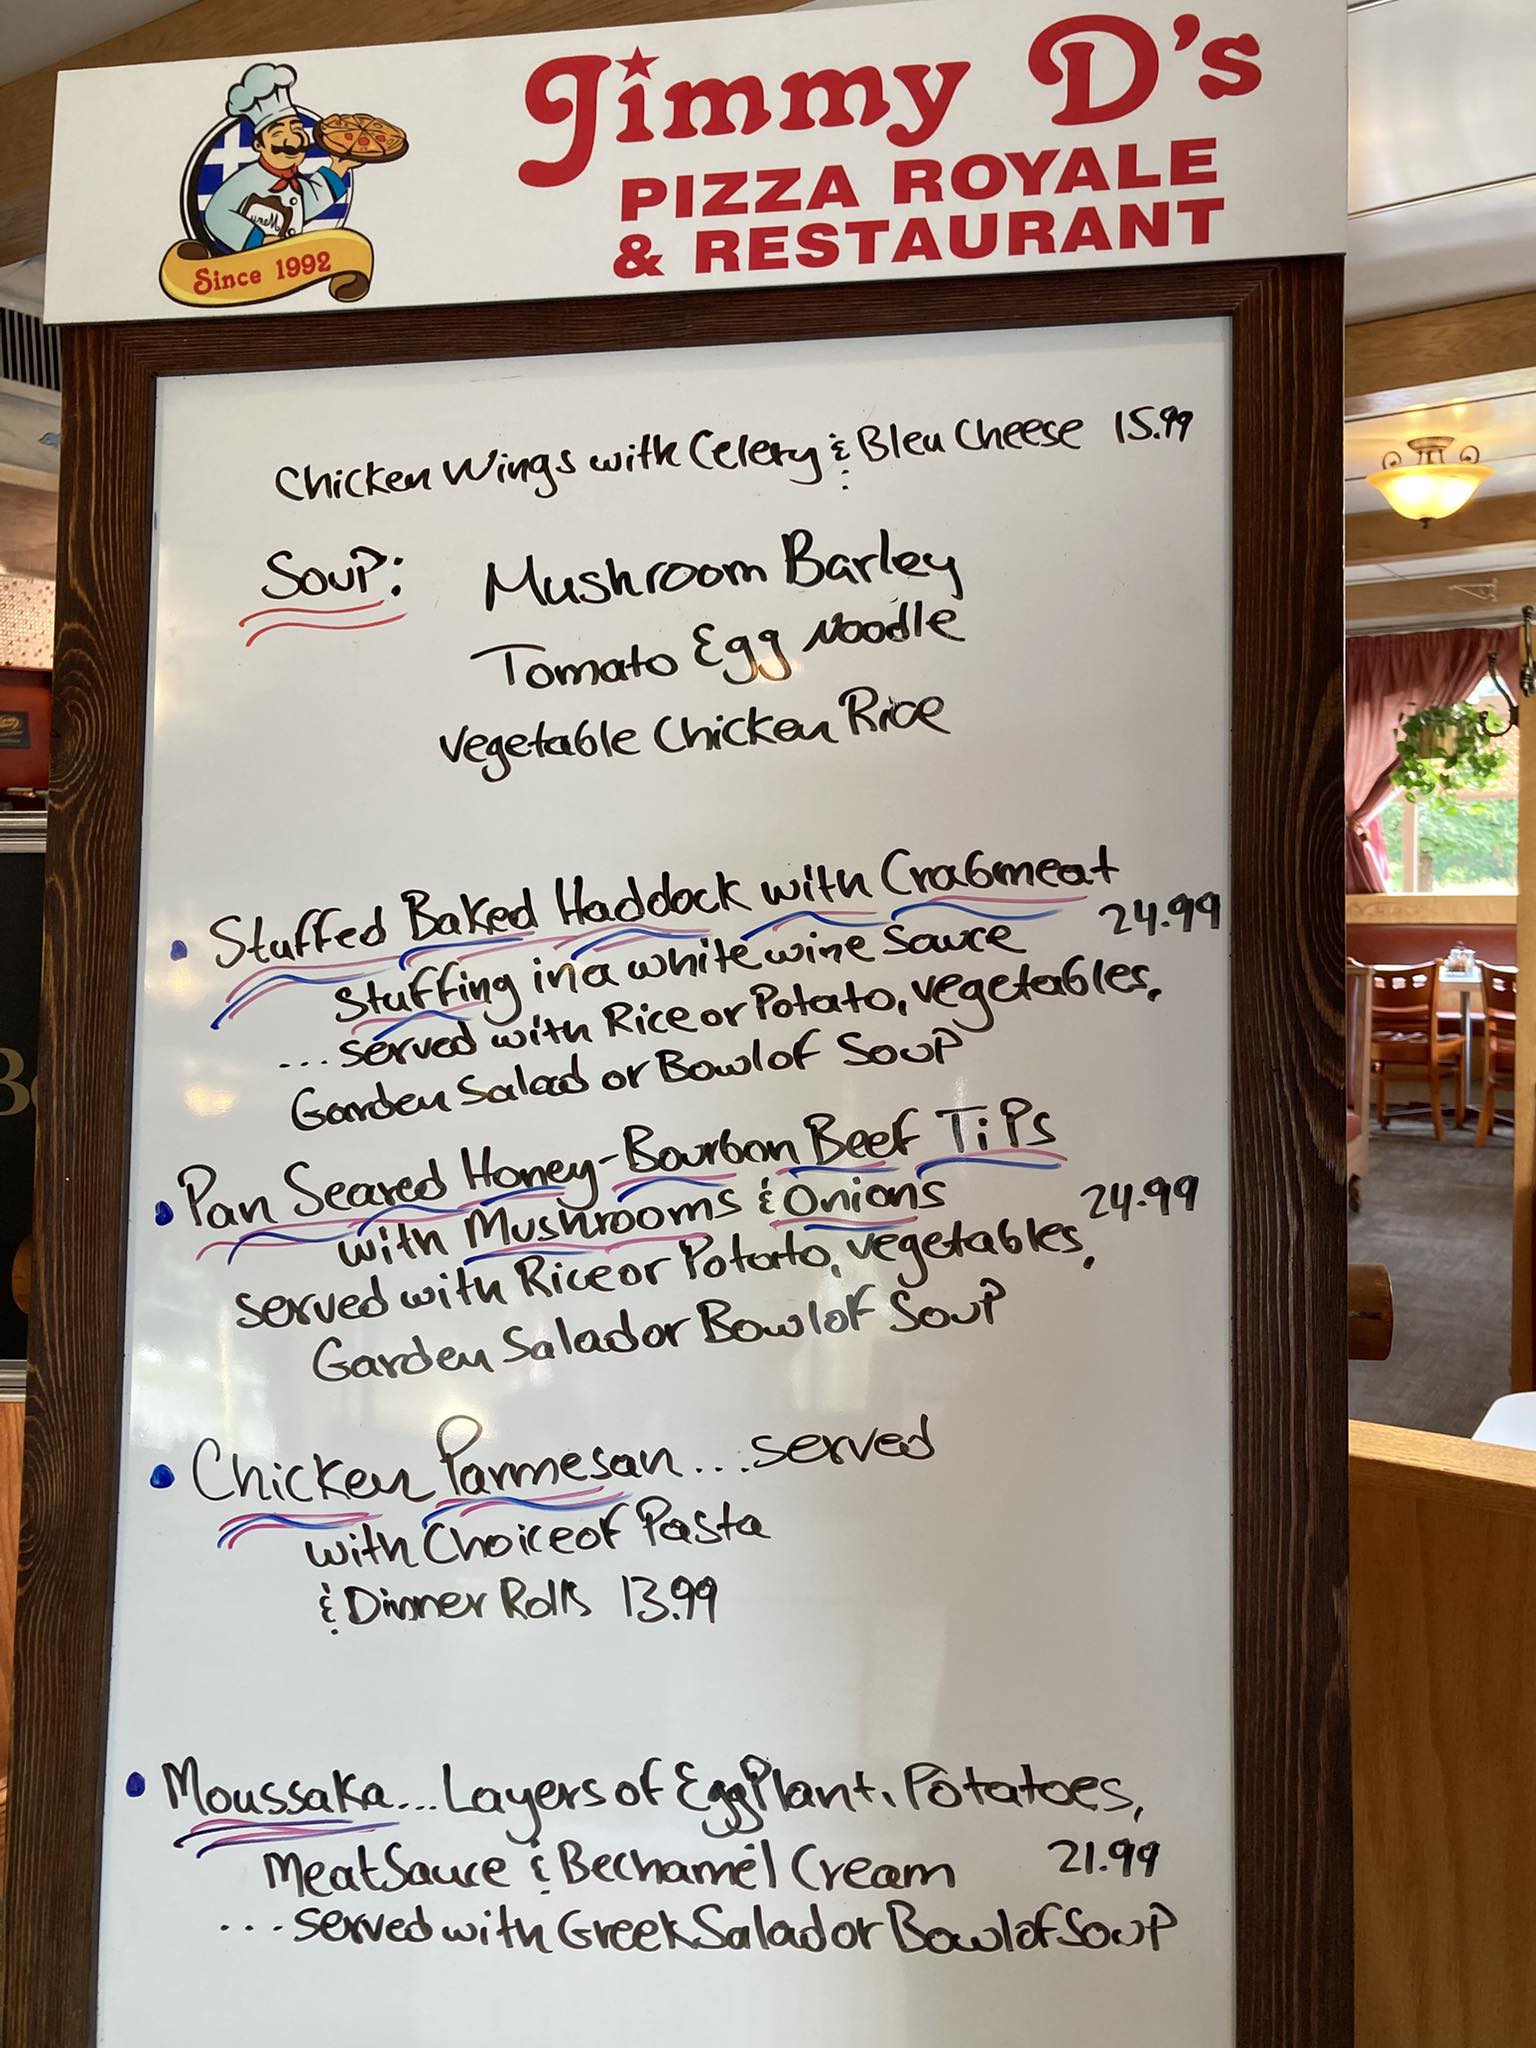 Jimmy D's
PIZZA ROYALE
& RESTAURANT
Menu
Since 1992
Chicken Wings with Celery & Bleu Cheese 15.99
Soup: Mushroom Barley
Tomato Egg Noodle
Vegetable Chicken Rice
• Stuffed Baked Haddock with Crabmeat
Stuffing in a white wine Sauce 24.99
...served with Rice or Potato, vegetables,
Garden Salad or Bowl of Soup
• Pan Seared Honey-Bourbon Beef Tips
with Mushrooms & Onions 24.99
served with Rice or Potato, vegetables,
Garden Salad or Bowl of Soup
• Chicken Parmesan...served
with Choice of Pasta
& Dinner Rolls 13.99
• Moussaka...Layers of EggPlant, Potatoes,
Meat Sauce & Bechamel Cream 21.99
...served with Greek Salad or Bowl of Soup